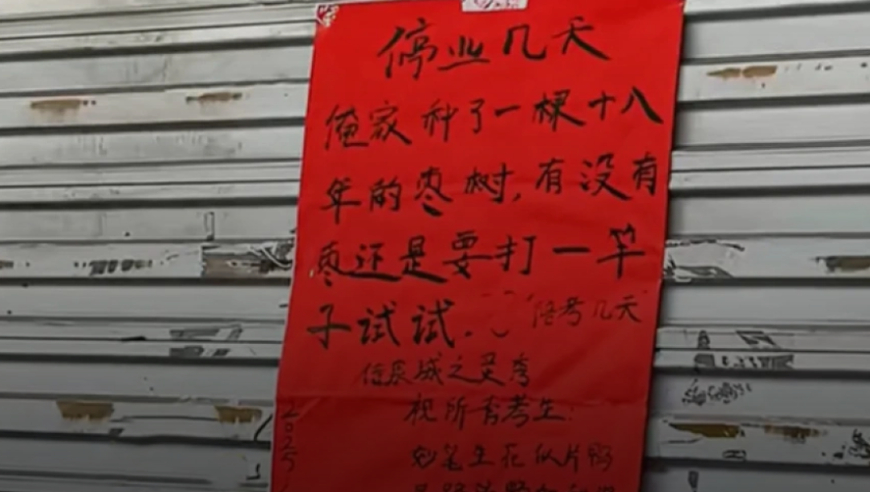 停业几天
俺家种了一棵十八
年的枣树,有没有
枣还是要打一竿
子试试.
陪考几天
信泉城之灵秀
祝所有考生:
妙笔生花似片
2025